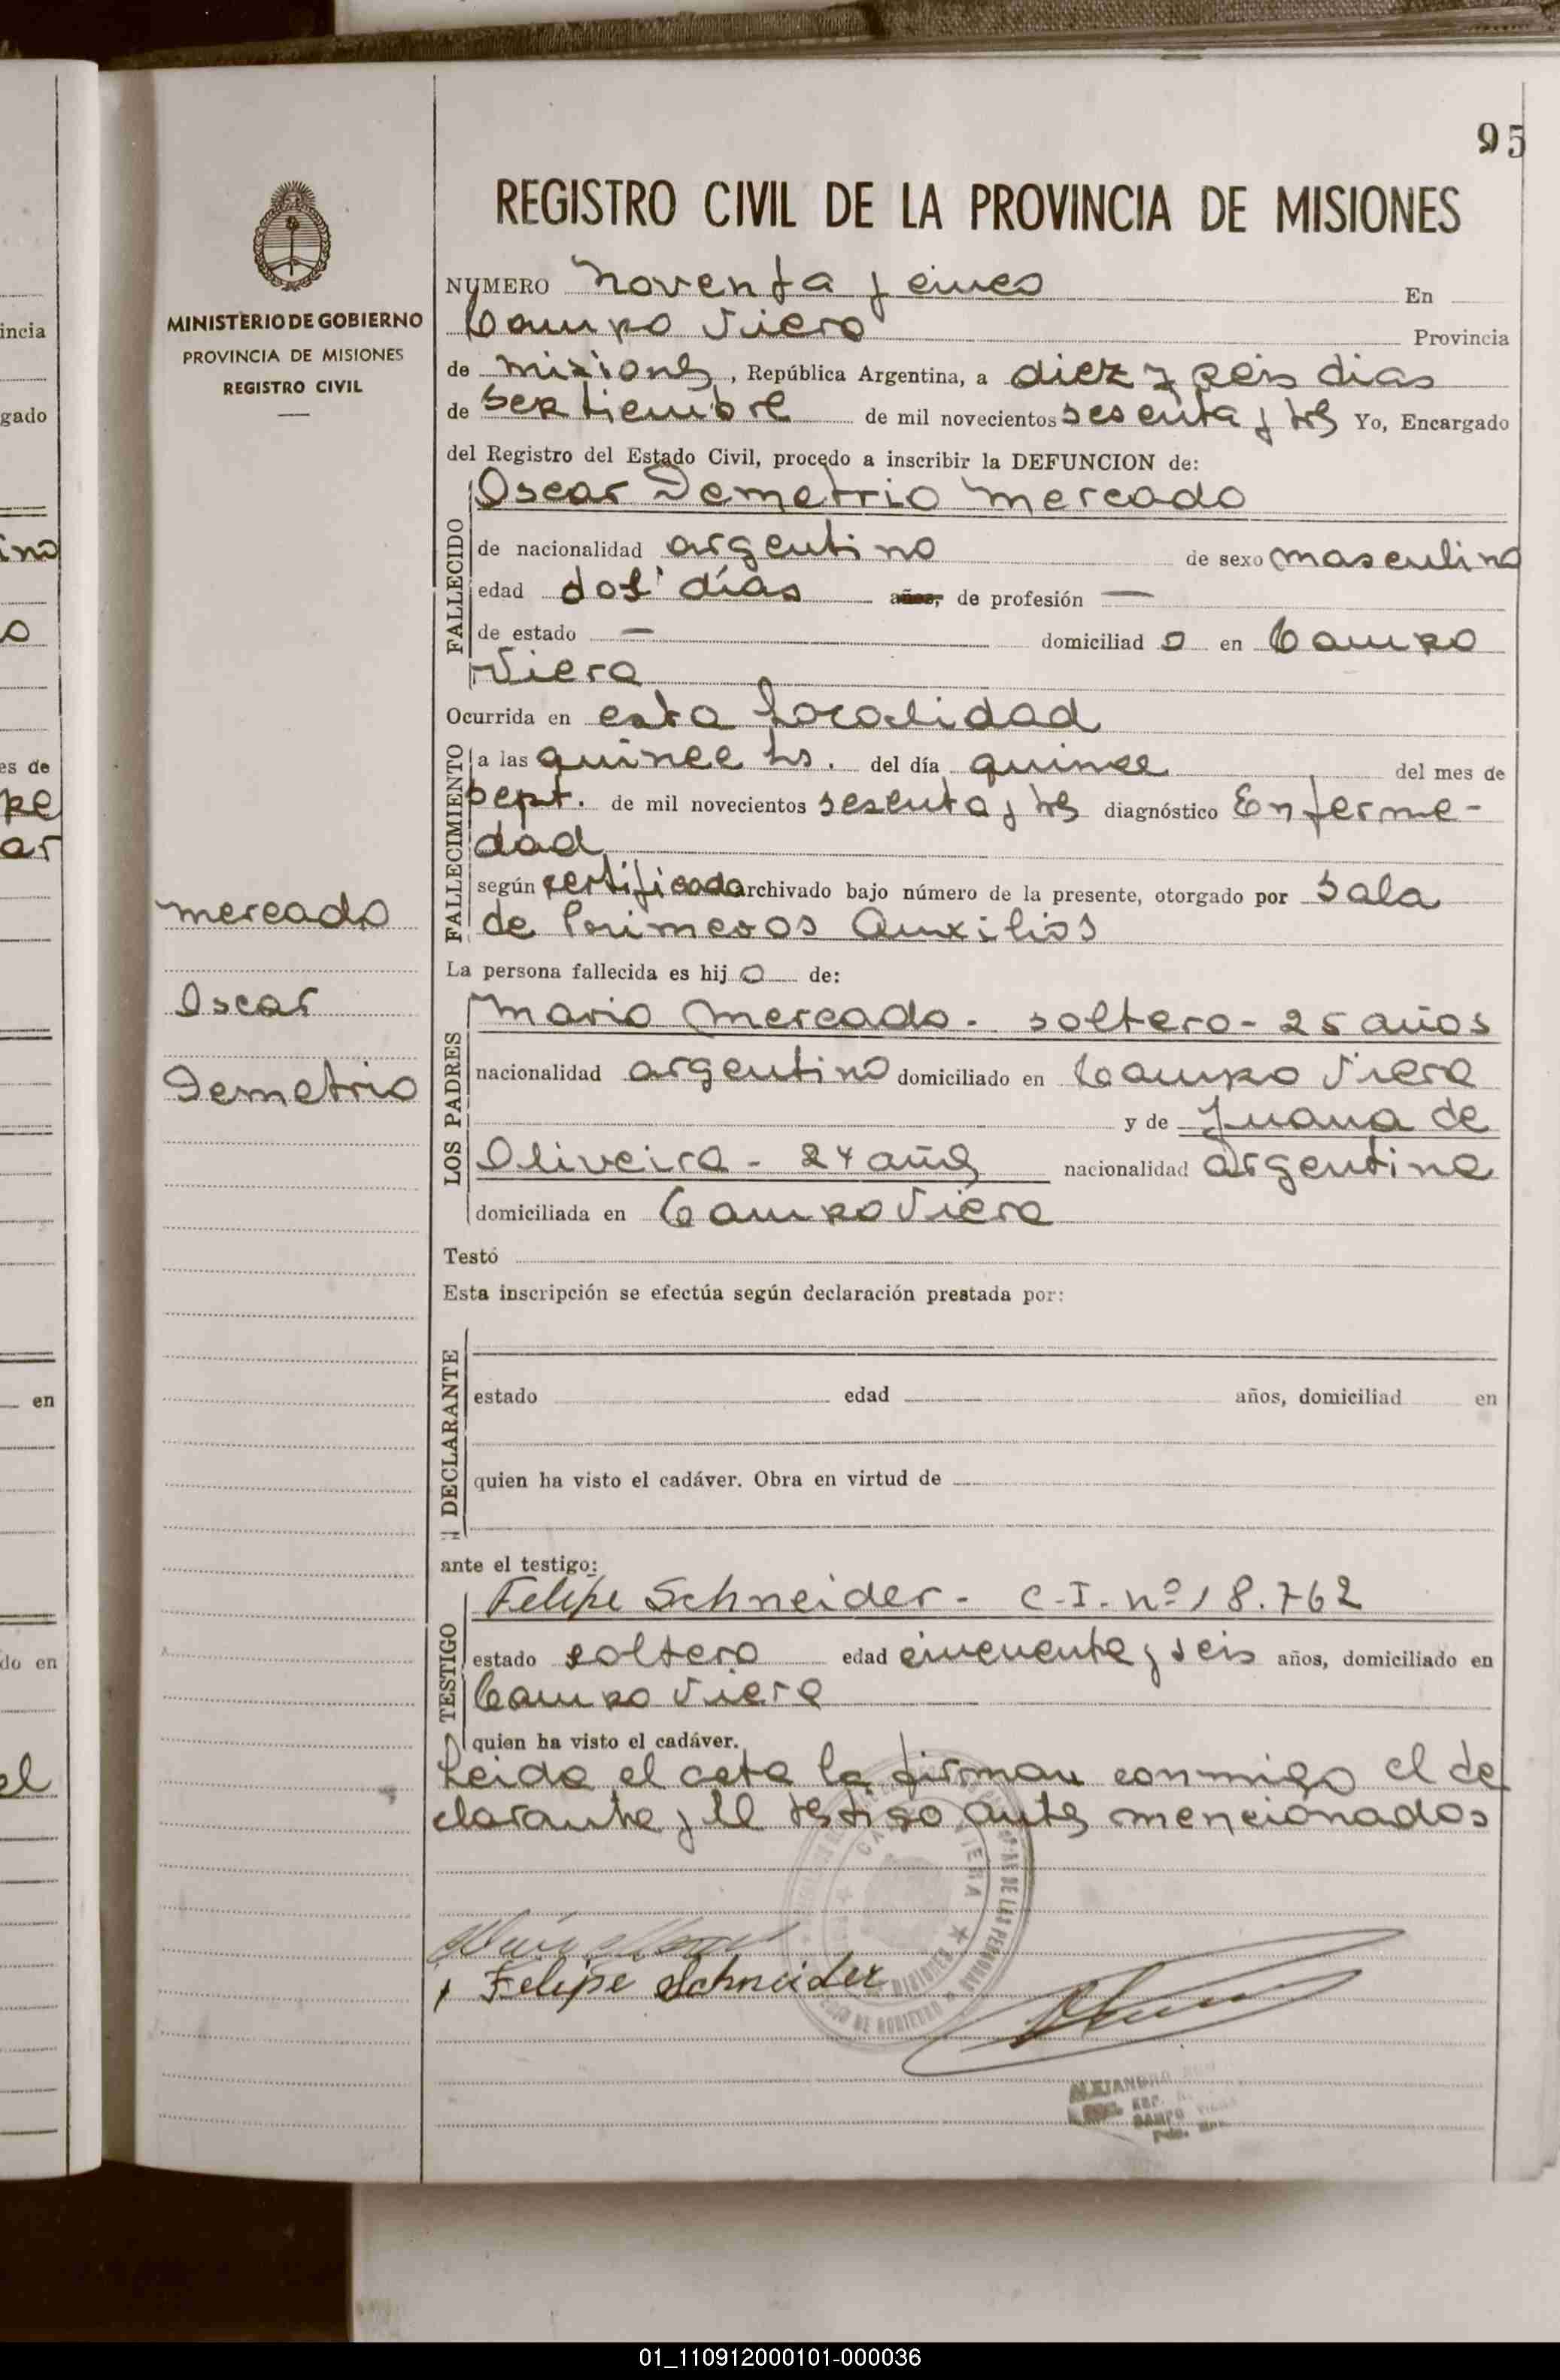 95
REGISTRO CIVIL DE LA PROVINCIA DE MISIONES
MINISTERIO DE GOBIERNO
PROVINCIA DE MISIONES
REGISTRO CIVIL
NUMERO noventa y cinco En
Campo Viera Provincia
de misiones, República Argentina, a diez y seis dias
de Septiembre de mil novecientos sesenta y tres Yo, Encargado
del Registro del Estado Civil, procedo a inscribir la DEFUNCION de:
Oscar Demetrio mercado
FALLECIDO
de nacionalidad argentino de sexo masculino
edad dos días años, de profesión —
de estado — domiciliad o en Campo
Viera
Ocurrida en esta localidad
FALLECIMIENTO
a las quince hs. del día quince del mes de
sept. de mil novecientos sesenta y tres diagnóstico Enferme-
dad
según certificado archivado bajo número de la presente, otorgado por Sala
de Primeros Auxilios
mercado
Oscar
Demetrio
La persona fallecida es hij o de:
LOS PADRES
Mario Mercado - soltero - 25 años
nacionalidad argentino domiciliado en Campo Viera
y de Juana de
Oliveira - 24 años nacionalidad argentina
domiciliada en Campo Viera
Testó
Esta inscripción se efectúa según declaración prestada por:
DECLARANTE
estado edad años, domiciliad en
quien ha visto el cadáver. Obra en virtud de
ante el testigo:
TESTIGO
Felipe Schneider - C.I. nº 18.762
estado soltero edad cincuenta y seis años, domiciliado en
Campo Viera
quien ha visto el cadáver.
Leida el acta la firman conmigo el de
clarante y el testigo antes mencionados
Felipe Schneider
01_110912000101-000036